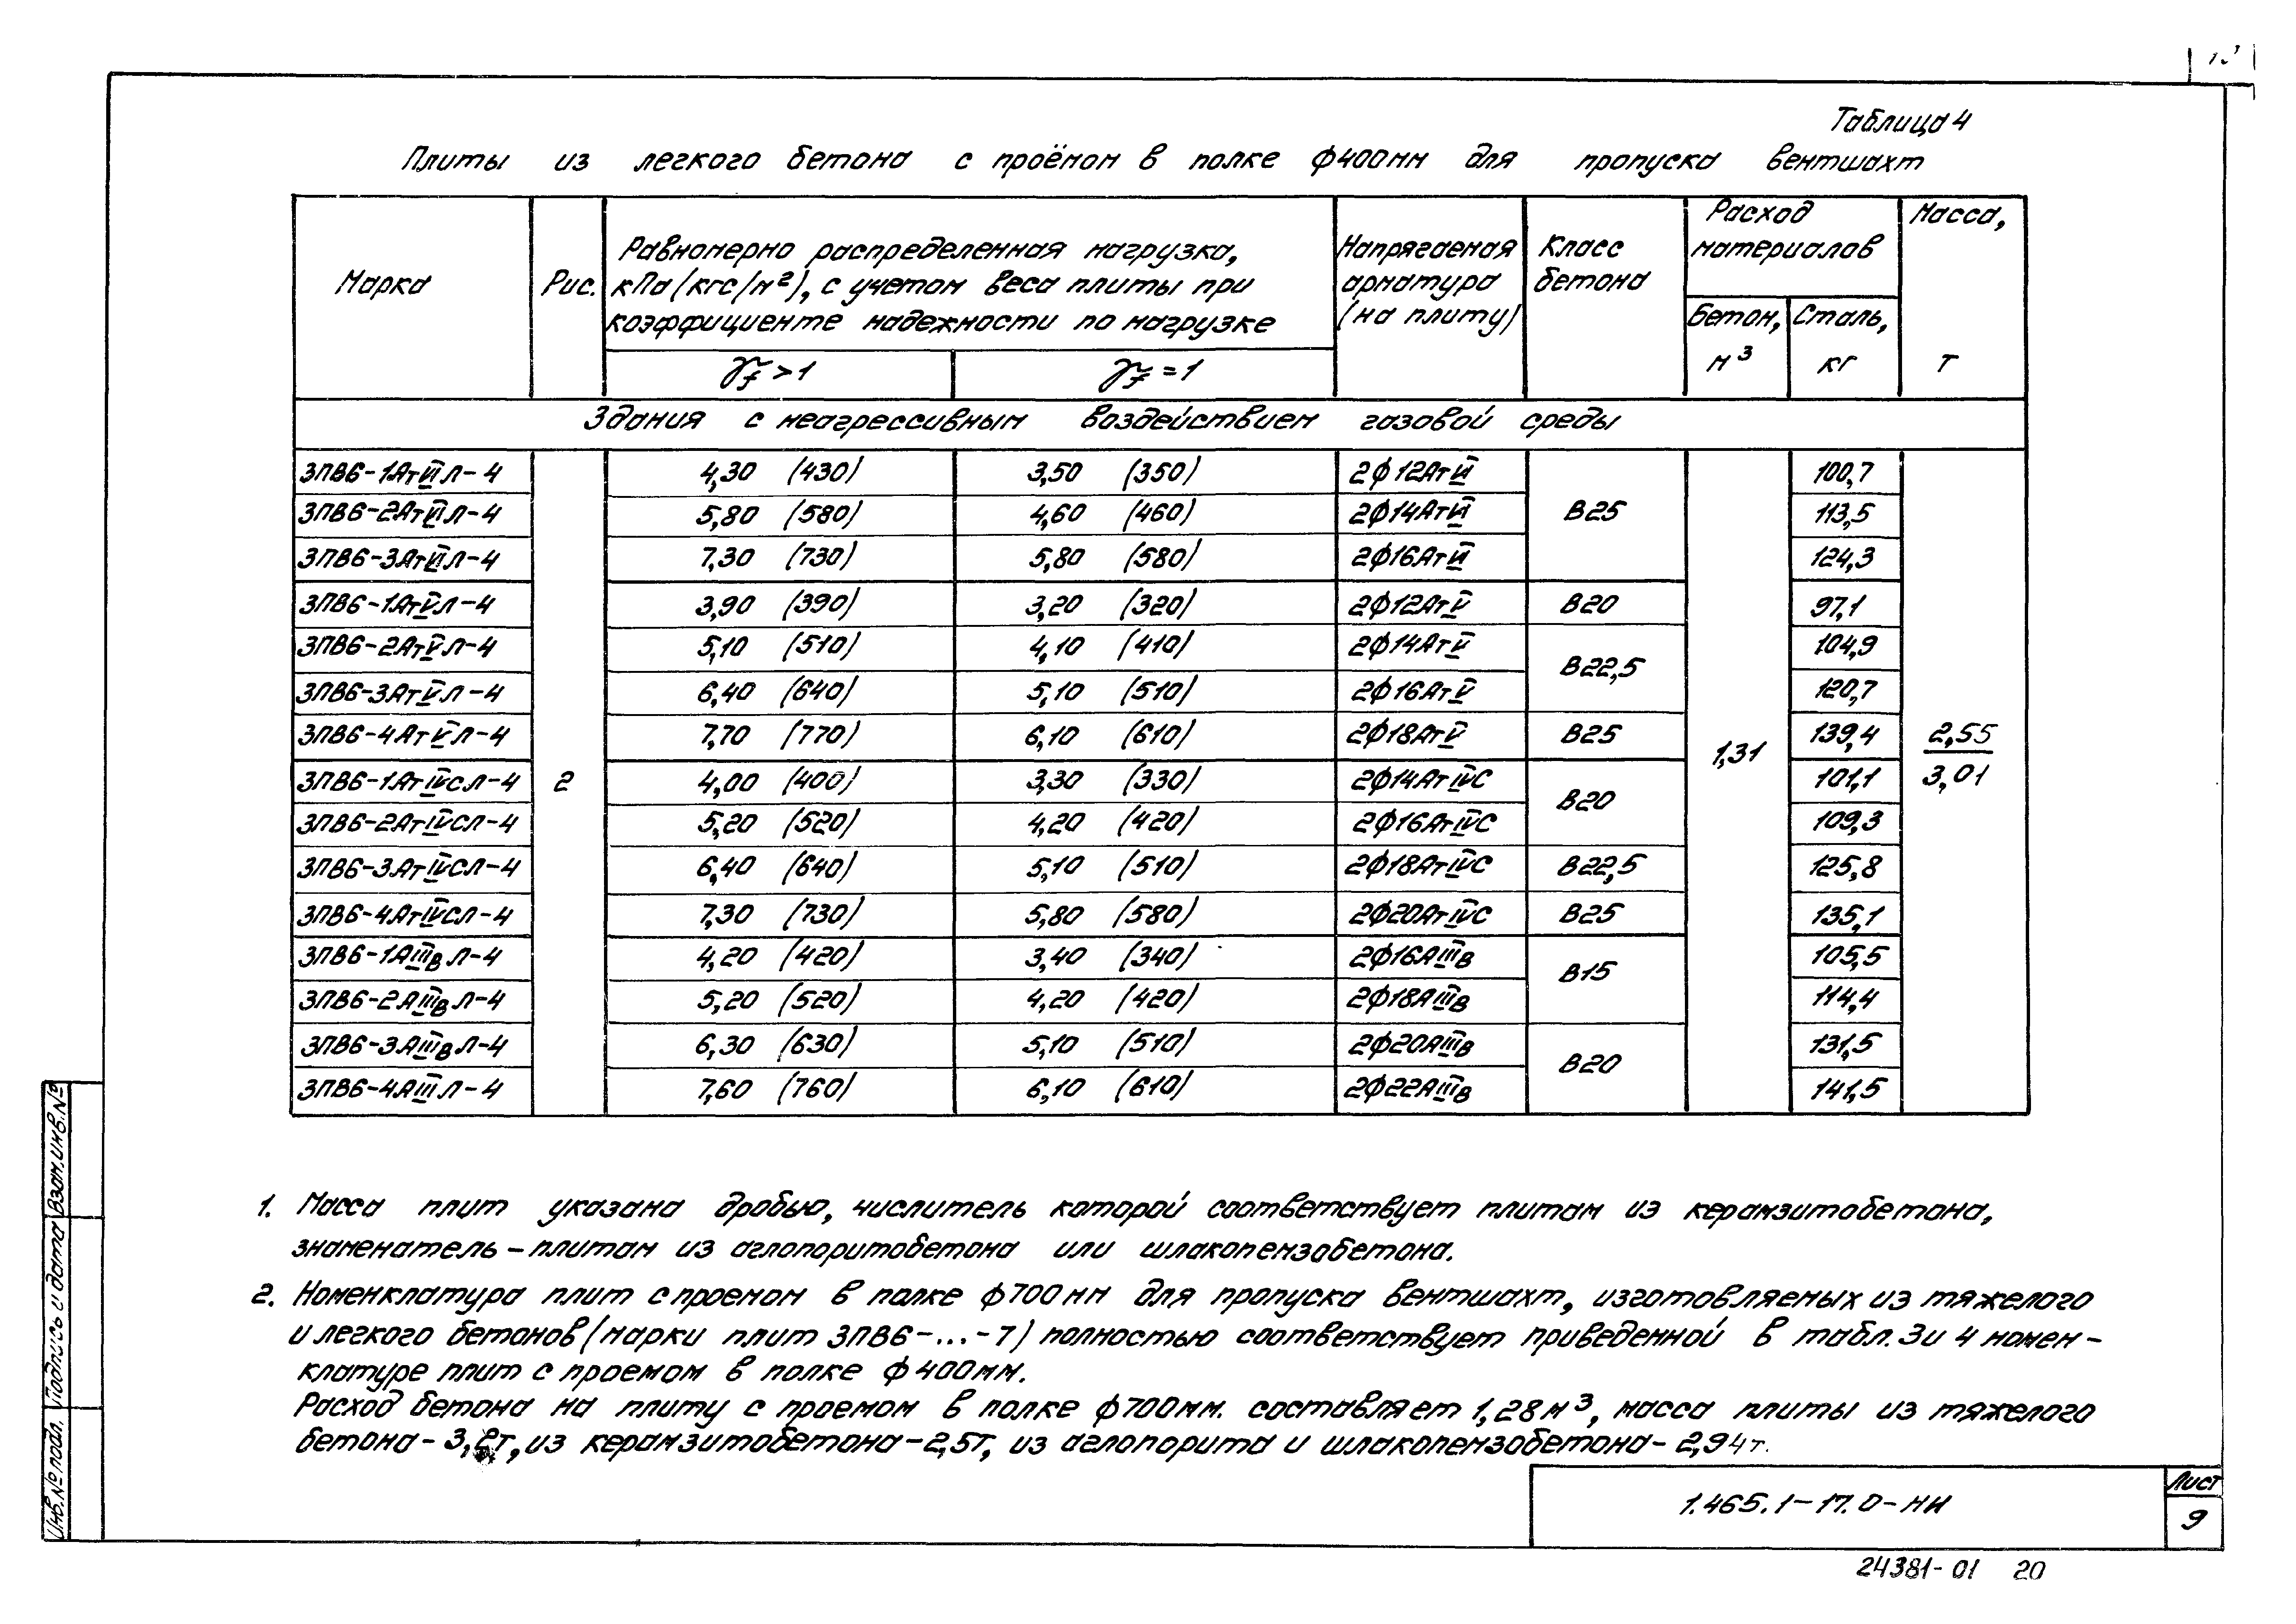 Таблица 4
Плиты из легкого бетона с проёмом в полке ф400мм для пропуска вентшахт
Марка
Рис.
Равномерно распределенная нагрузка,
кПа (кгс/м²), с учетом веса плиты при
коэффициенте надежности по нагрузке
γf > 1
γf = 1
Напрягаемая
арматура
(на плиту)
Класс
бетона
Расход
материалов
Бетон,
м³
Сталь,
кг
Масса,
т
Здания с неагрессивным воздействием газовой среды
3ПВ6-1АтVIЛ-4 4,30 (430) 3,50 (350) 2ф12АтVI 100,7
3ПВ6-2АтVIЛ-4 5,80 (580) 4,60 (460) 2ф14АтVI В25 113,5
3ПВ6-3АтVIЛ-4 7,30 (730) 5,80 (580) 2ф16АтVI 124,3
3ПВ6-1АтVЛ-4 3,90 (390) 3,20 (320) 2ф12АтV В20 97,1
3ПВ6-2АтVЛ-4 5,10 (510) 4,10 (410) 2ф14АтV 104,9
В22,5
3ПВ6-3АтVЛ-4 6,40 (640) 5,10 (510) 2ф16АтV 120,7
3ПВ6-4АтVЛ-4 7,70 (770) 6,10 (610) 2ф18АтV В25 1,31 139,4 2,55
3ПВ6-1АтIVСЛ-4 2 4,00 (400) 3,30 (330) 2ф14АтIVС 101,1 3,01
В20
3ПВ6-2АтIVСЛ-4 5,20 (520) 4,20 (420) 2ф16АтIVС 109,3
3ПВ6-3АтIVСЛ-4 6,40 (640) 5,10 (510) 2ф18АтIVС В22,5 125,8
3ПВ6-4АтIVСЛ-4 7,30 (730) 5,80 (580) 2ф20АтIVС В25 135,1
3ПВ6-1АIIIвЛ-4 4,20 (420) 3,40 (340) 2ф16АIIIв 105,5
В15
3ПВ6-2АIIIвЛ-4 5,20 (520) 4,20 (420) 2ф18АIIIв 114,4
3ПВ6-3АIIIвЛ-4 6,30 (630) 5,10 (510) 2ф20АIIIв 131,5
В20
3ПВ6-4АIIIЛ-4 7,60 (760) 6,10 (610) 2ф22АIIIв 141,5
1. Масса плит указана дробью, числитель которой соответствует плитам из керамзитобетона,
знаменатель - плитам из аглопоритобетона или шлакопемзобетона.
2. Номенклатура плит с проемом в полке ф700мм для пропуска вентшахт, изготовляемых из тяжелого
и легкого бетонов (марки плит 3ПВ6-...-7) полностью соответствует приведенной в табл. 3 и 4 номен-
клатуре плит с проемом в полке ф400мм.
Расход бетона на плиту с проемом в полке ф700мм. составляет 1,28м³, масса плиты из тяжелого
бетона - 3,2т, из керамзитобетона - 2,5т, из аглопорита и шлакопемзобетона - 2,94т.
Инв.№ подл. Подпись и дата Взам.инв.№
1.465.1-17.0-НИ
Лист
9
24381-01 20